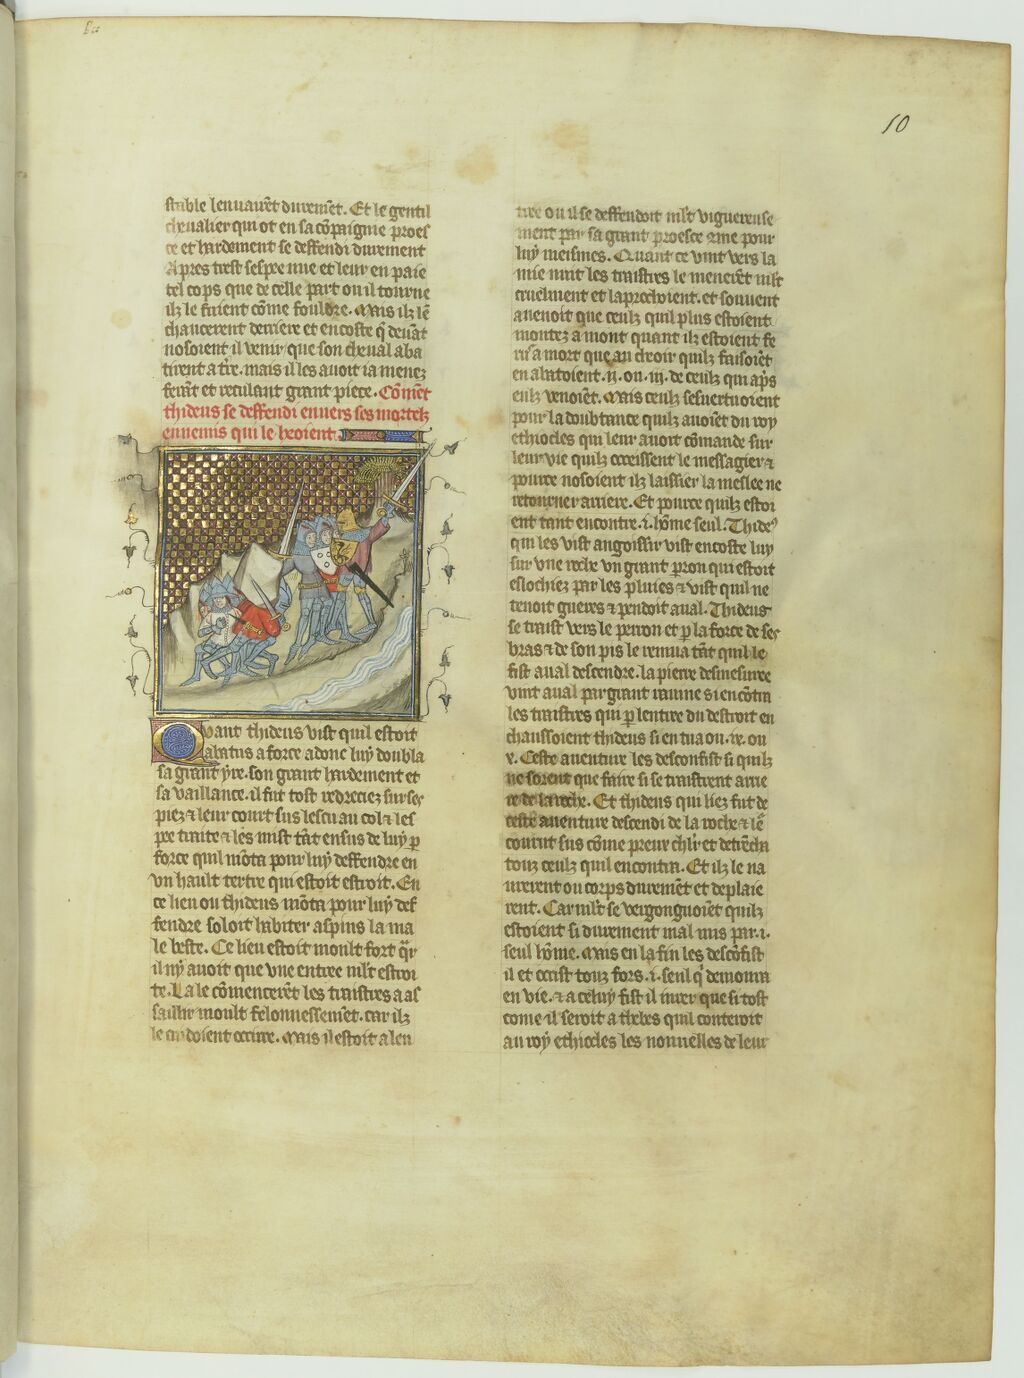 10
stable lenuaïret durem̃et. Et le gentil
cheualier qui ot en sa cõpaignie proes
ce et hardement se deffendi durement
Apres trest sespee nue et leur en paie
tel cops que de celle part ou il tourne
ilz le fuient cõme fouldre. Mais ilz lẽ
chaucerent derriere et encoste q̃ deuãt
nosoient il venir que son cheual aba
tirent a t̃re. mais il les auoit ia menez
ferãt et reculant grant piece. Cõmẽt
thideus se deffendi enuers ses mortelz
ennemis qui le heoient
Quant thideus vist quil estoit
abatus a force adonc luy doubla
sa grant yre. son grant hardement et
sa vaillance. il fut tost redreciez sur ses
piez ⁊ leur court sus lescu au col ⁊ les
pee traite ⁊ les mist tãt ensus de luy ꝑ
force quil mõta pour luy deffendre en
vn hault tertre qui estoit estroit. En
ce lieu ou thideus mõta pour luy def
fendre soloit habiter aspins la ma
le beste. Ce lieu estoit moult fort q̃r
il ny auoit que vne entree ml̃t estroi
te. La le cõmencerẽt les traistres a as
saillir moult felonnessemẽt. car ilz
le cuidoient occirre. Mais il estoit a len
tree ou il se deffendoit ml̃t viguereuse
ment par sa grant proesce ⁊ me pour
luy meismes. Quant ce vint vers la
mie nuit les traistres le menerẽt ml̃t
cruelment et laprochoient. et souuent
auenoit que ceulz qui plus estoient
montez a mont quant ilz estoient fe
rus a mort que au cheoir quilz faisoiẽt
en abatoient .ij. ou .iij. de ceulz qui ap̃s
eulz venoiẽt. Mais ceulz sesuertuoient
pour la doubtance quilz auoiẽt du roy
ethiocles qui leur auoit cõmande sur
leur vie quilz occeissent le messagier ⁊
pource nosoient ilz laissier la meslee ne
retourner arriere. Et pource quilz estoi
ent tant encontre .i. hõme seul. Thideꝰ
qui les vist angoissir vist encoste luy
sur vne roche vn grant perron qui estoit
eslochiez par les pluies ⁊ vist quil ne
tenoit gueres ⁊ pendoit aual. Thideus
se traist vers le perron et ꝑ la force de ses
bras ⁊ de son pis le remua tãt quil le
fist aual descendre. la pierre desmesuree
vint aual par grant rauine si encõtra
les traistres qui ꝑ lentree du destroit en
chaussoient thideus si en tua ou .xv. ou
x. Ceste auenture les desconfist si quilz
ne sorent que faire si se traistrent arrie
re de la roche. Et thideus qui liez fut de
ceste auenture descendi de la roche ⁊ lẽ
courut sus cõme preux chl̃r et detrẽcha
touz ceulz quil encontra. Et ilz le na
urerent ou corps duremẽt et deplaie
rent. Car ml̃t se vergongnoiẽt quilz
estoient si durement mal mis par .i.
seul hõme. Mais en la fin les descõfist
il et occist touz fors .i. seul q̃ demoura
en vie. ⁊ a celuy fist il iurer que si tost
come il seroit a thebes quil conteroit
au roy ethiocles les nouuelles de leur